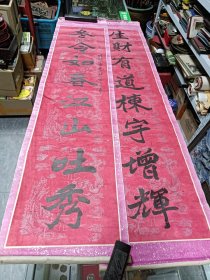 生財有道棟宇增輝
令如春江山吐秀